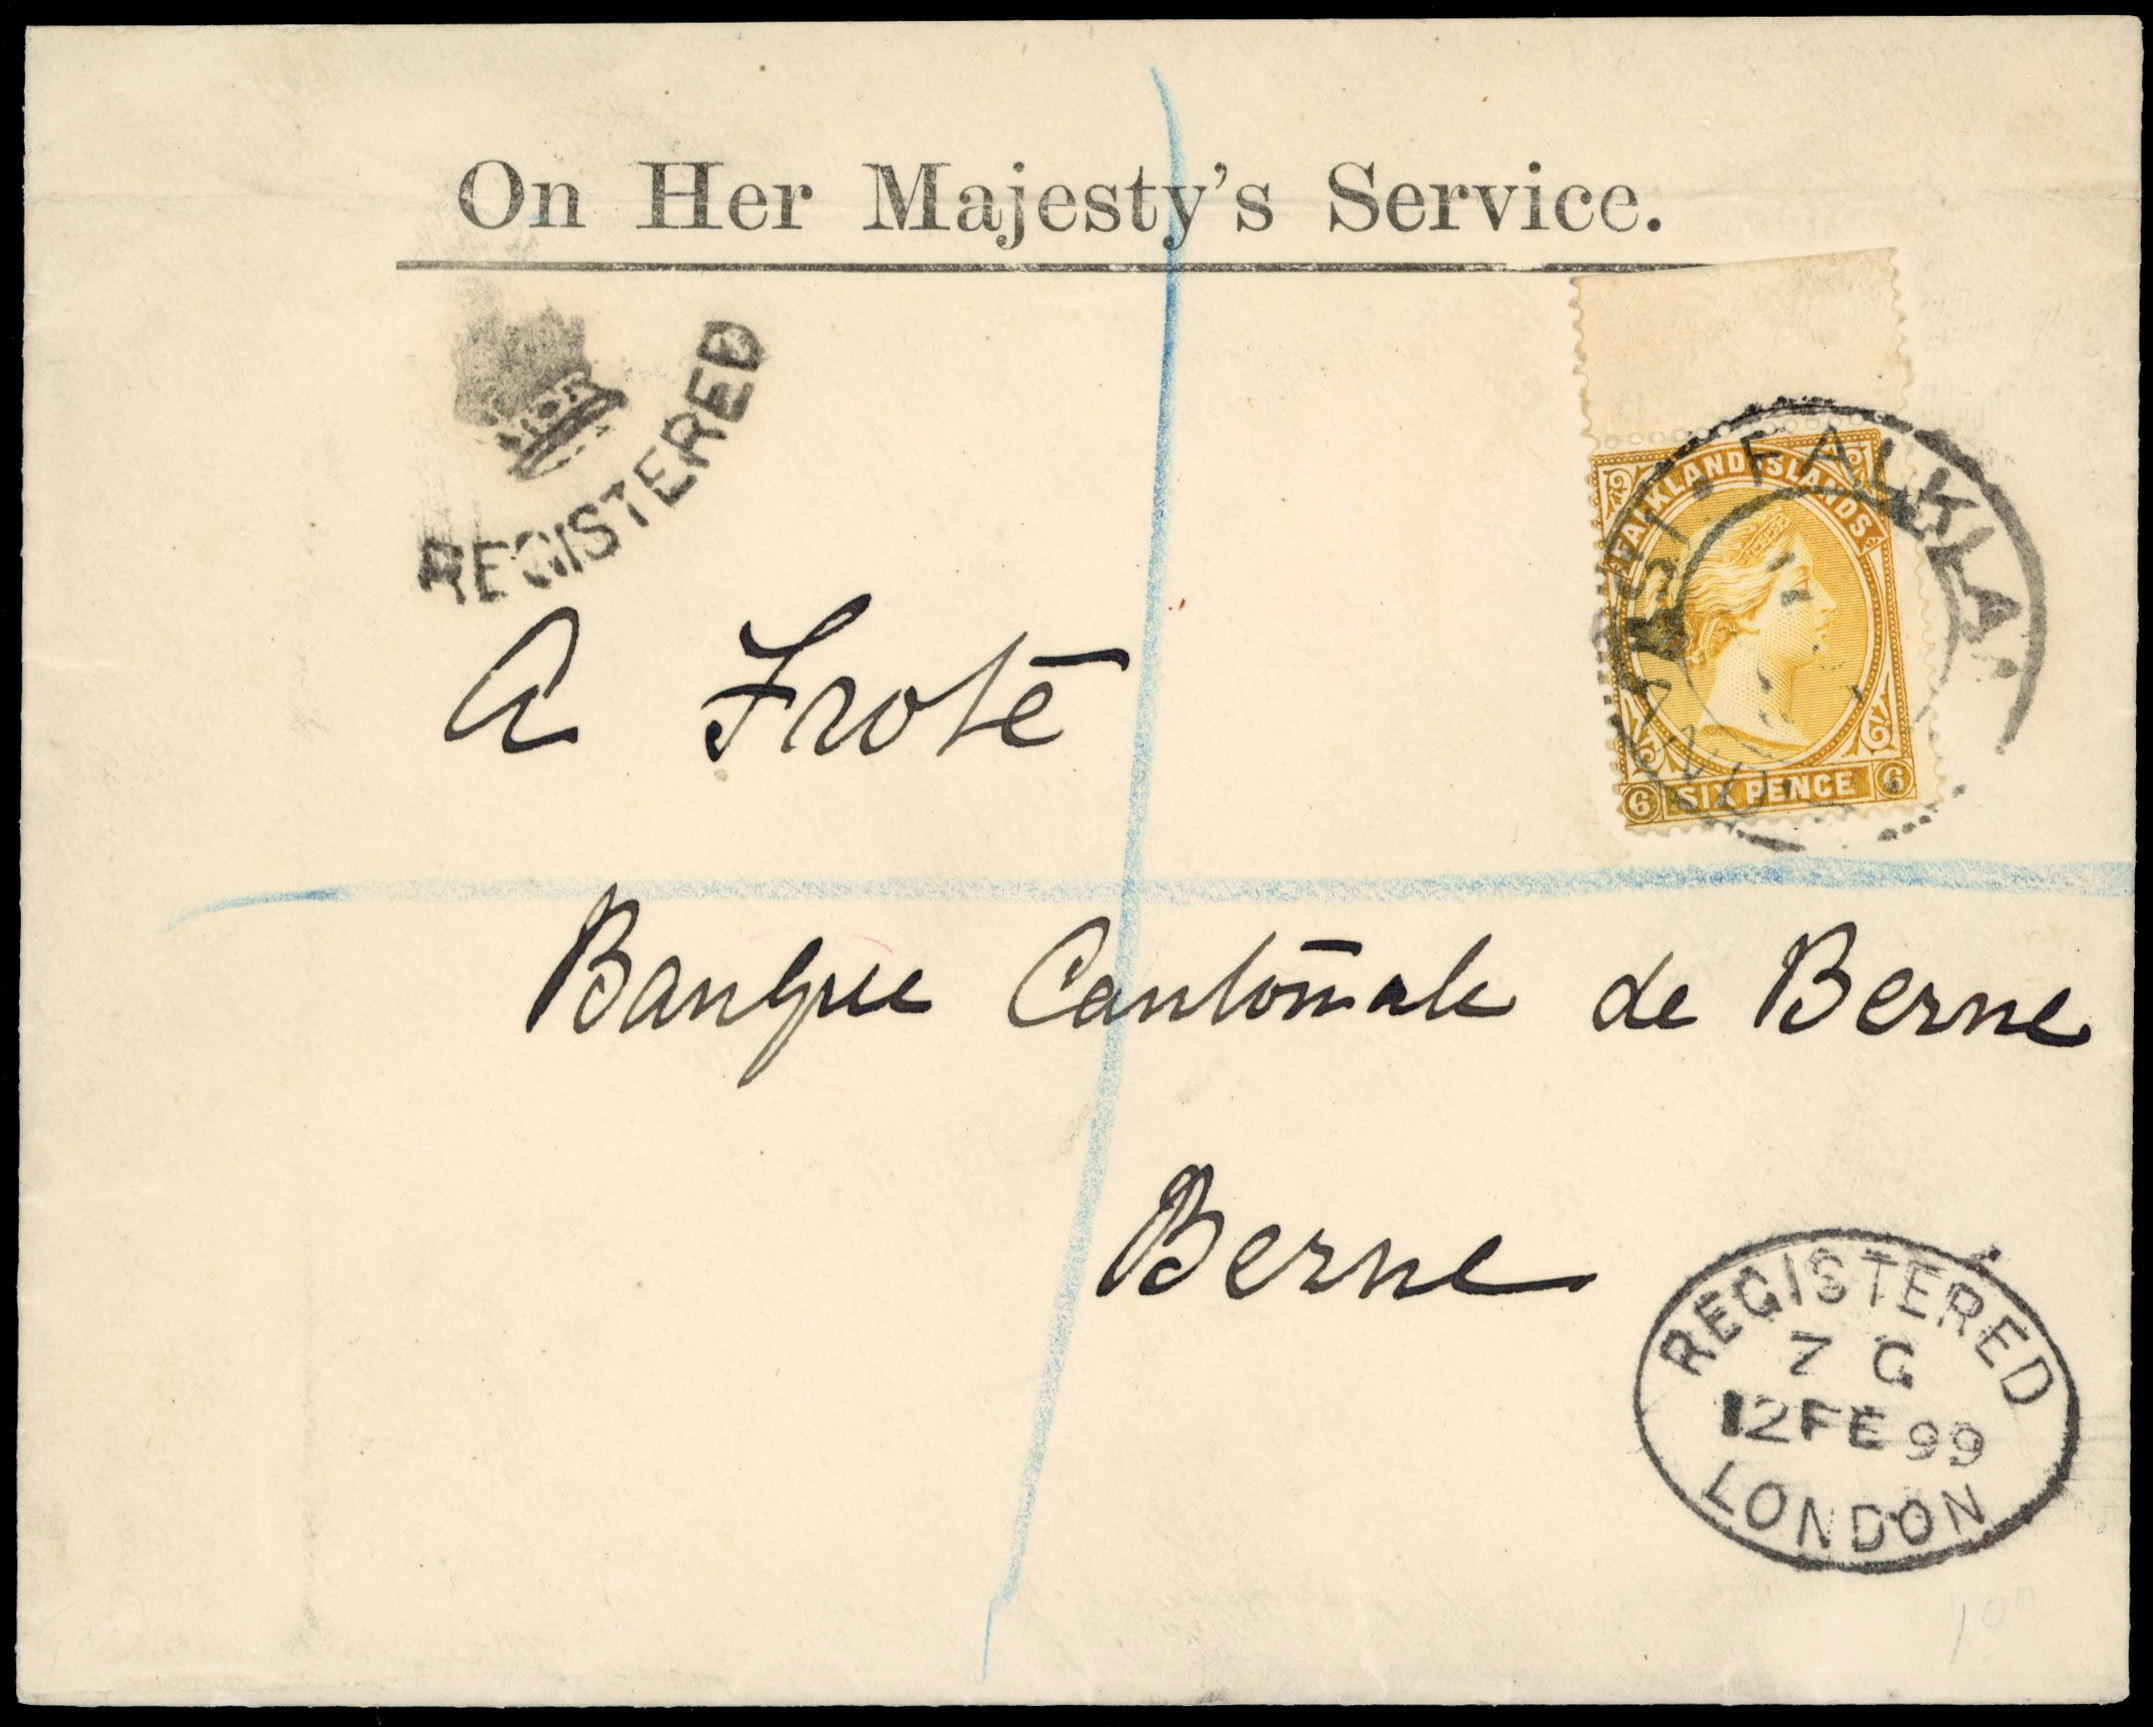 On Her Majesty's Service.
REGISTERED
FALKLAND ISLANDS
FALKLA
6 SIX PENCE 6
A Froté
Banque Cantonale de Berne
Berne
REGISTERED
7 G
12 FE 99
LONDON